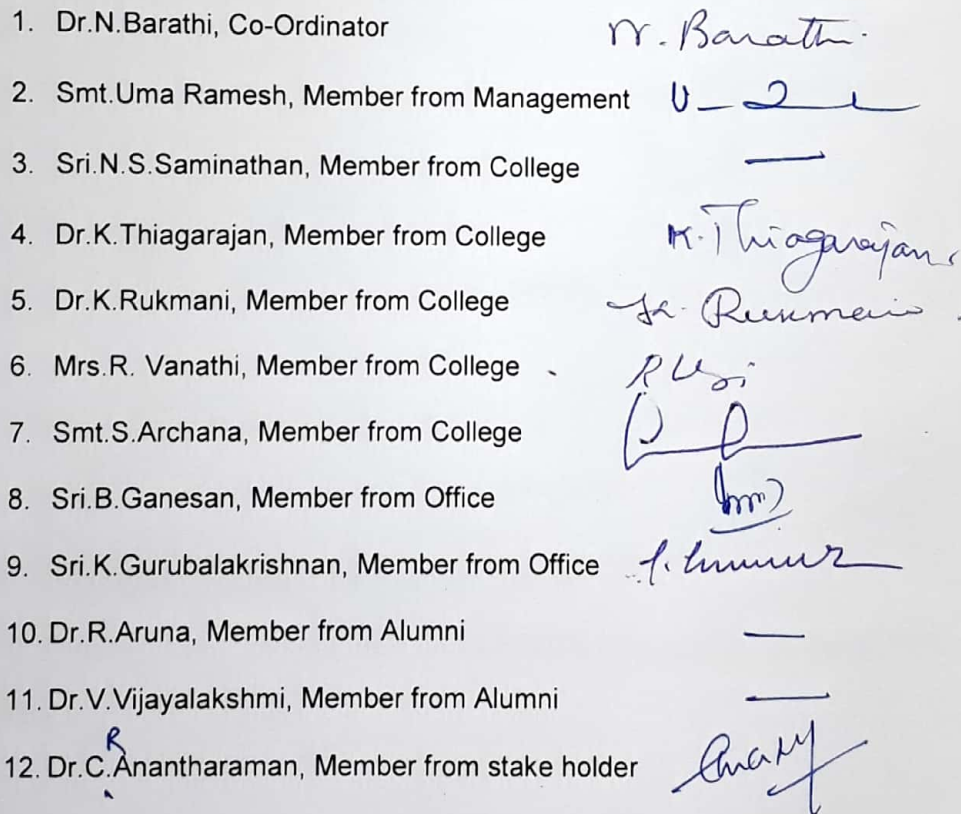 1. Dr.N.Barathi, Co-Ordinator N. Barathi.
2. Smt.Uma Ramesh, Member from Management
3. Sri.N.S.Saminathan, Member from College —
4. Dr.K.Thiagarajan, Member from College K. Thiagarajan
5. Dr.K.Rukmani, Member from College K. Rukmani
6. Mrs.R. Vanathi, Member from College
7. Smt.S.Archana, Member from College
8. Sri.B.Ganesan, Member from Office
9. Sri.K.Gurubalakrishnan, Member from Office
10. Dr.R.Aruna, Member from Alumni —
11. Dr.V.Vijayalakshmi, Member from Alumni —
12. Dr.C.R Anantharaman, Member from stake holder